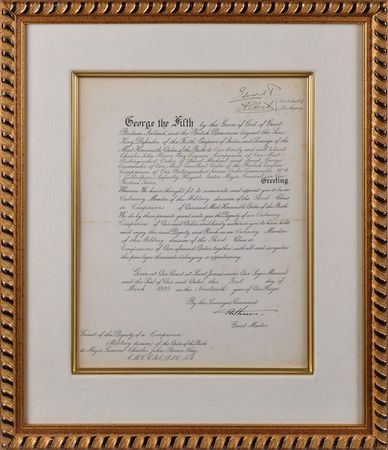 Edward P
Albert
On behalf of
His Majesty
George the Fifth by the Grace of God of Great
Britain, Ireland, and the British Dominions beyond the Seas
King Defender of the Faith, Emperor of India and Sovereign of the
Most Honorable Order of the Bath to Our Trusty and well beloved
Charles John Bruce Hay Esquire, Companion of Our Most
Distinguished Order of Saint Michael and Saint George
Commander of Our Most Excellent Order of the British Empire
Companion of Our Distinguished Service Order
Greeting
Whereas We have thought fit to nominate and appoint you to be an
Ordinary Member of the Military division of the Third Class
or Companions of Our said Most Honorable Order of the Bath
We do by these presents grant unto you the Dignity of an Ordinary
Companion of Our said Order and hereby authorise you to have hold
and enjoy the said Dignity and Rank as an Ordinary Member
of the Military division of the Third Class or
Companions of Our aforesaid Order together with all and singular
the privileges thereunto belonging or appertaining.
Given at Our Court at Saint James's under Our Sign Manual
and the Seal of Our said Order, this First day of
March in the Nineteenth year of Our Reign
By the Sovereign's Command
Great Master
Grant of the Dignity of a Companion
(Military division) of the Order of the Bath
to Major General Charles John Bruce Hay,
C.M.G., C.B.E., D.S.O., I.A.